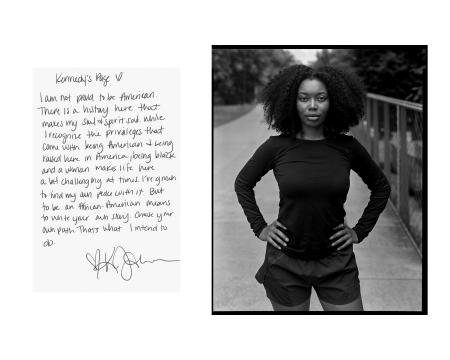 Kennedy's Page ♡
I am not proud to be American.
There is a history here that
makes my soul & spirit sad. While
I recognize the privileges that
come with being American & being
raised here in America, being black
and a woman makes life here
a bit challenging at times. I've grown
to find my own peace with it. But
to be an African-American means
to write your own story. Create your
own path. That's what I intend to
do.